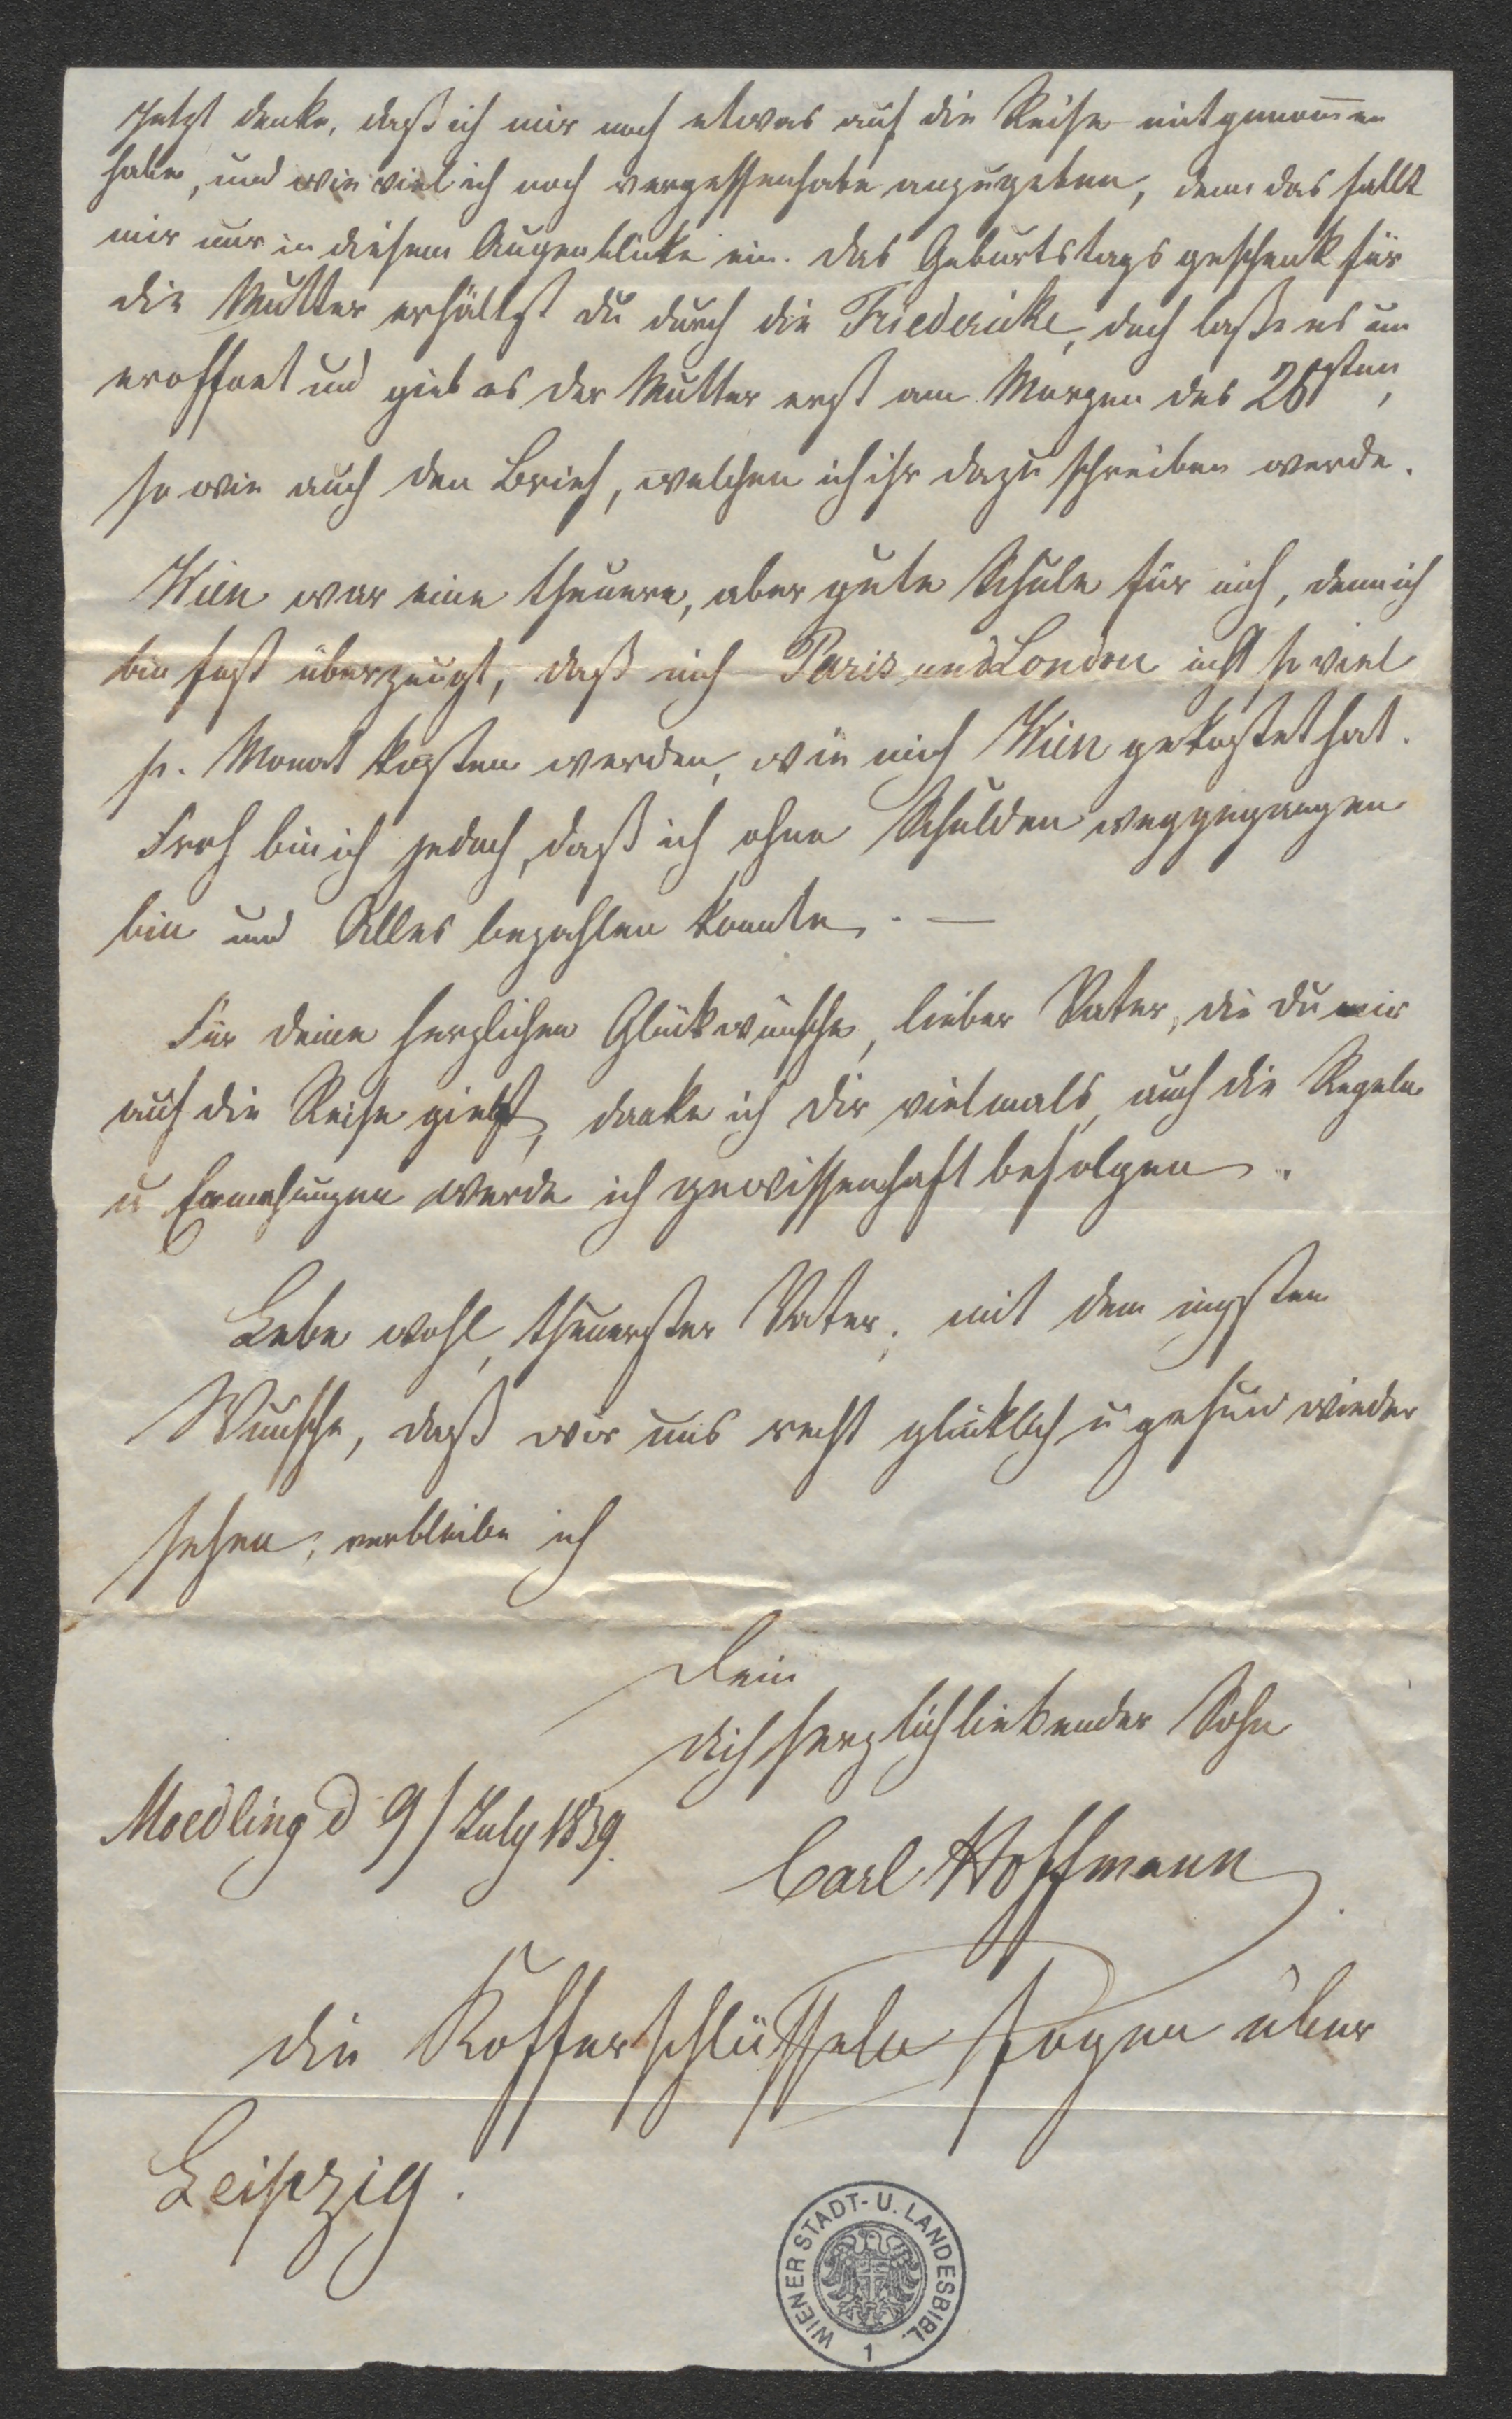 jetzt denke, daß ich mir noch etwas auf die Reise mitgenom̅en
habe, und wie viel ich noch vergessen habe anzugeben, denn das fallt
mir nur in diesem Augenblicke ein. Das Geburtstags geschenk für
die Mutter erhältst du durch die Friedericke, doch laße es un
eroffnet und gieb es der Mutter erst am Morgen des 26sten,
so wie auch den Brief, welchen ich ihr dazu schreiben werde.
Wien war eine theuere, aber gute Schule für mich, denn ich
bin fest überzeugt, daß mich Paris und London nicht so viel
pr. Monat kosten werden, wie mich Wien gekostet hat.
Froh bin ich jedoch, daß ich ohne Schulden weggegangen
bin und Alles bezahlen konnte. —
Für deine herzlichen Glückwünsche, lieber Vater, die du mir
auf die Reise giebst, danke ich dir vielmals, auch die Regeln
u Ermahnungen werde ich gewissenhaft befolgen.
Lebe wohl, theuerster Vater, mit dem
Wunsche, daß wir uns recht glücklich u gesund wieder
sehen, verbleibe ich
Dein
dich herzlich liebender Sohn
Moedling d 9/ July 1839.
Carl Hoffmann
die Kofferschlüsseln folgen über
Leipzig.
WIENER STADT- U. LANDESBIBL.
1